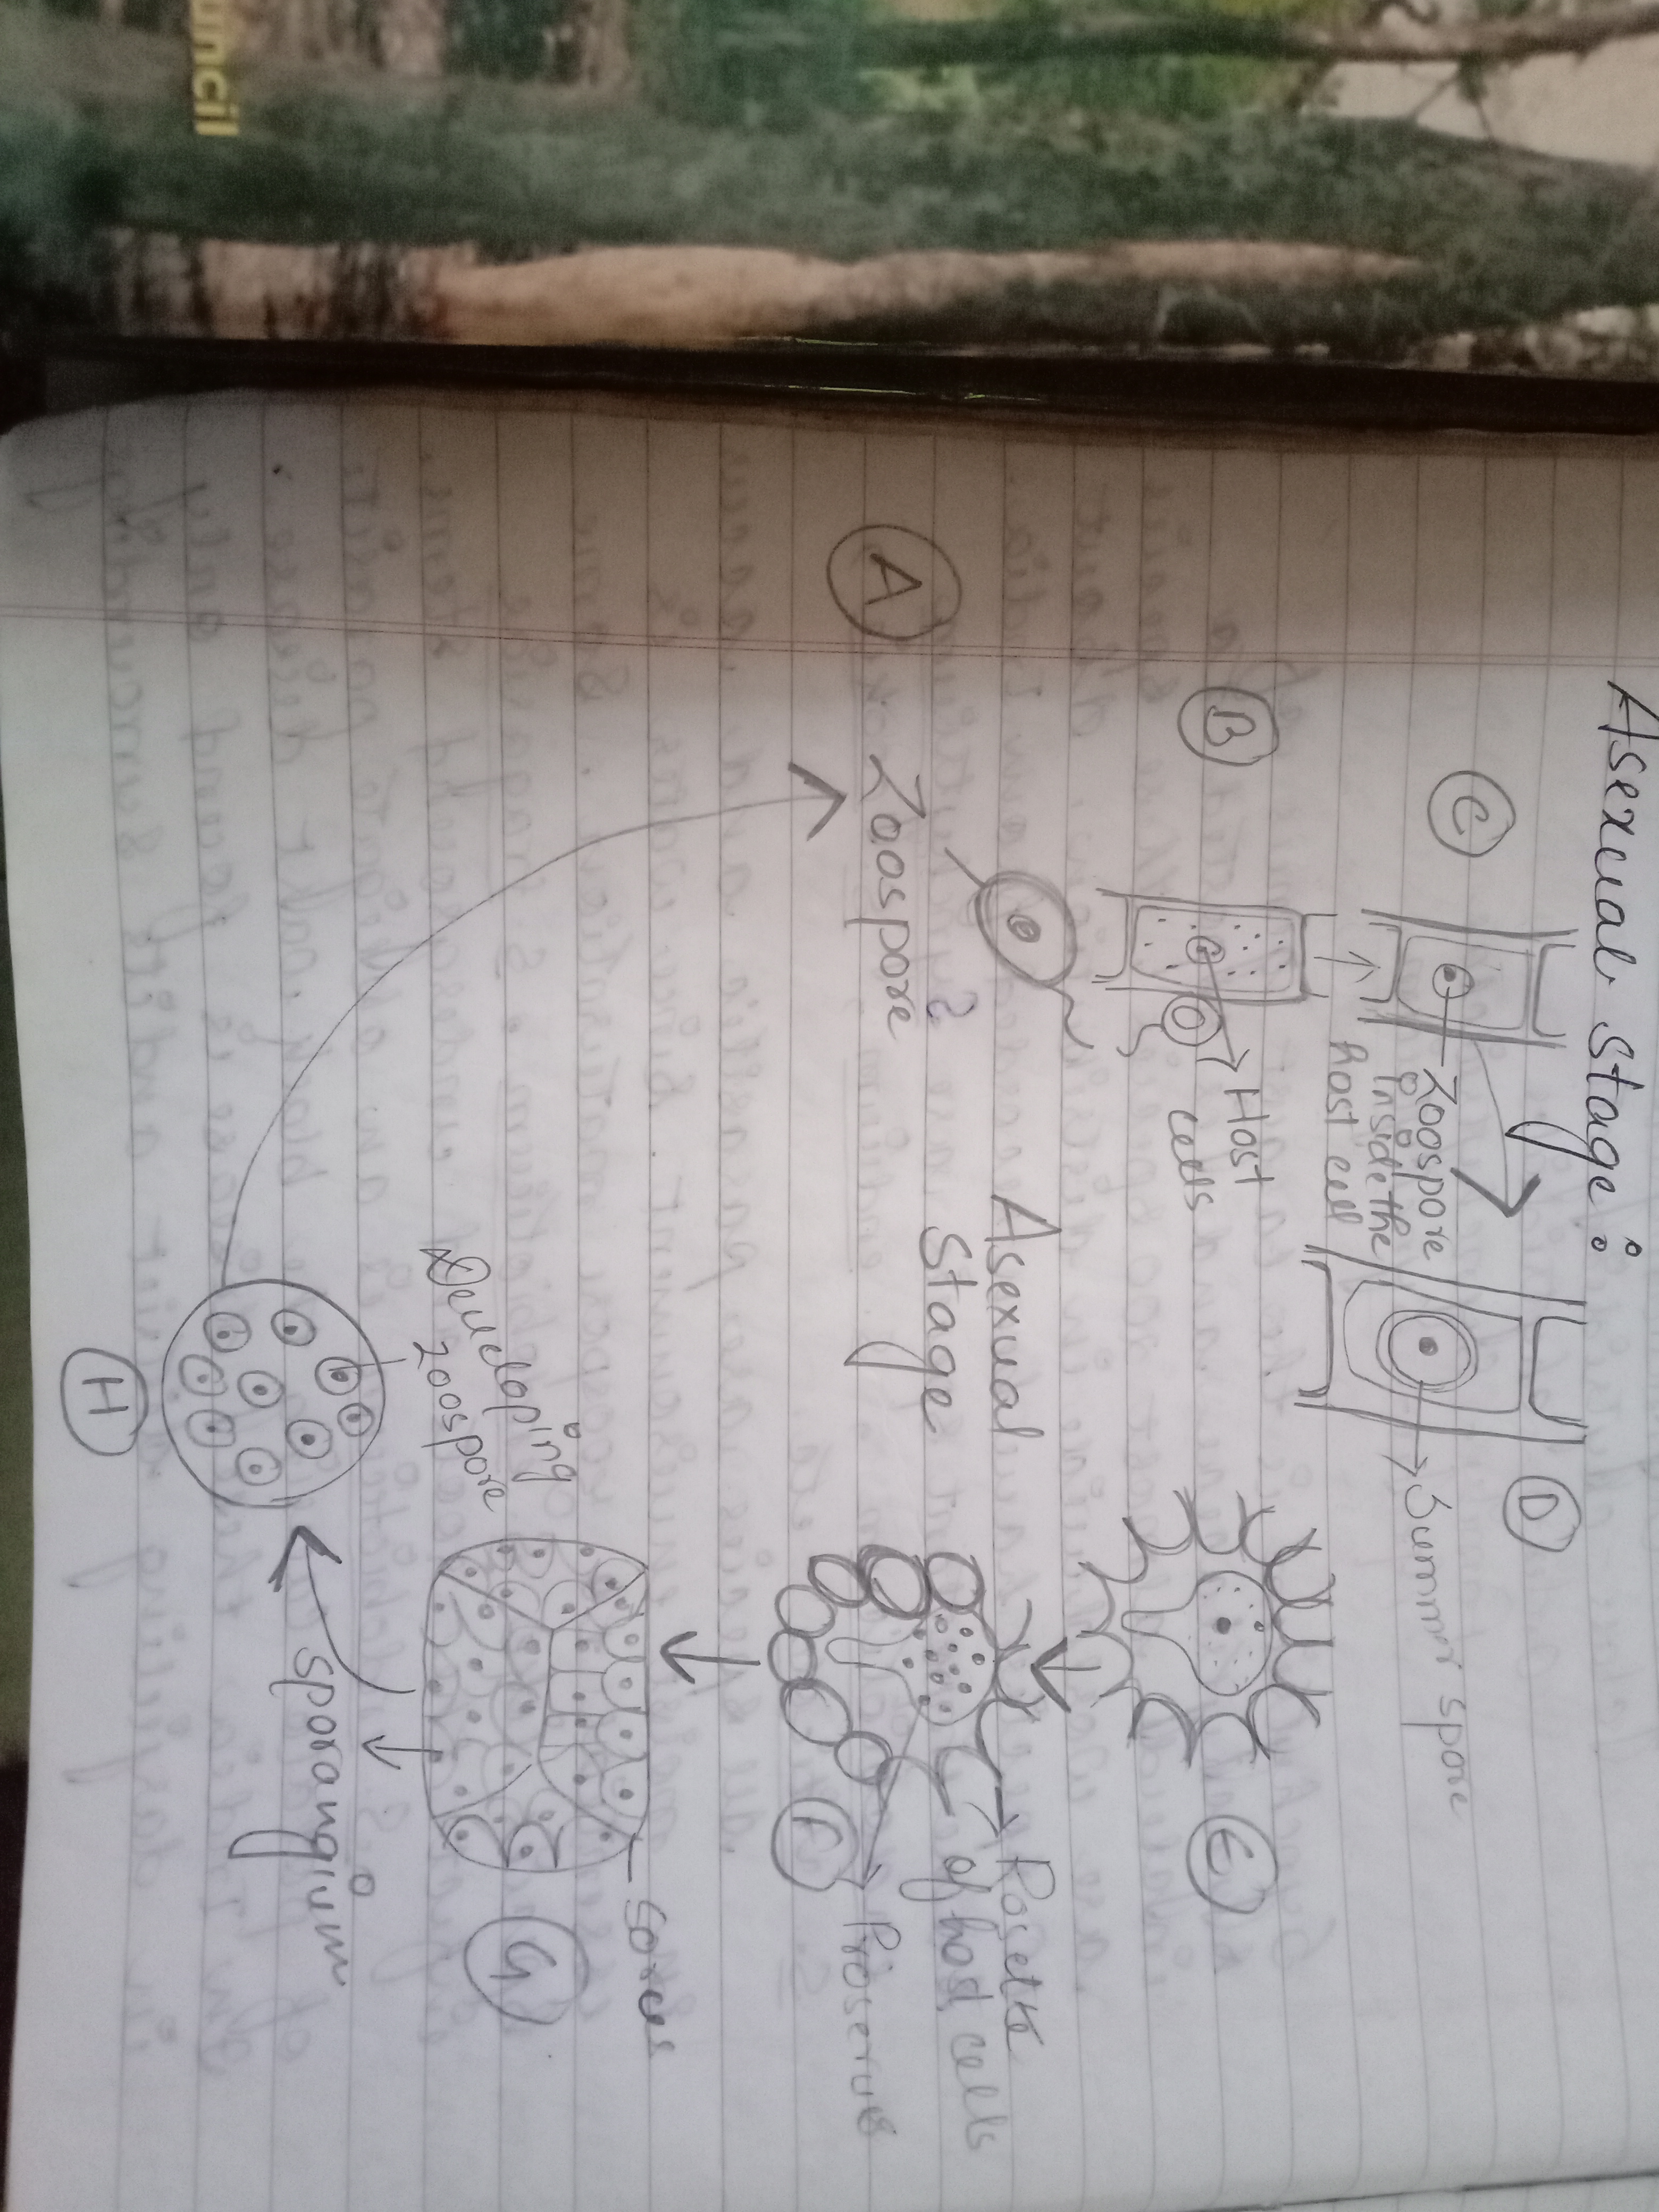 uncil
Asexual stage :
C
Zoospore
inside the
host cell
D
Summer spore
B
Host
cells
E
A
Zoospore
Asexual
Stage
Rosette
of host cells
F
Developing
zoospore
Sorus
G
H
Sporangium